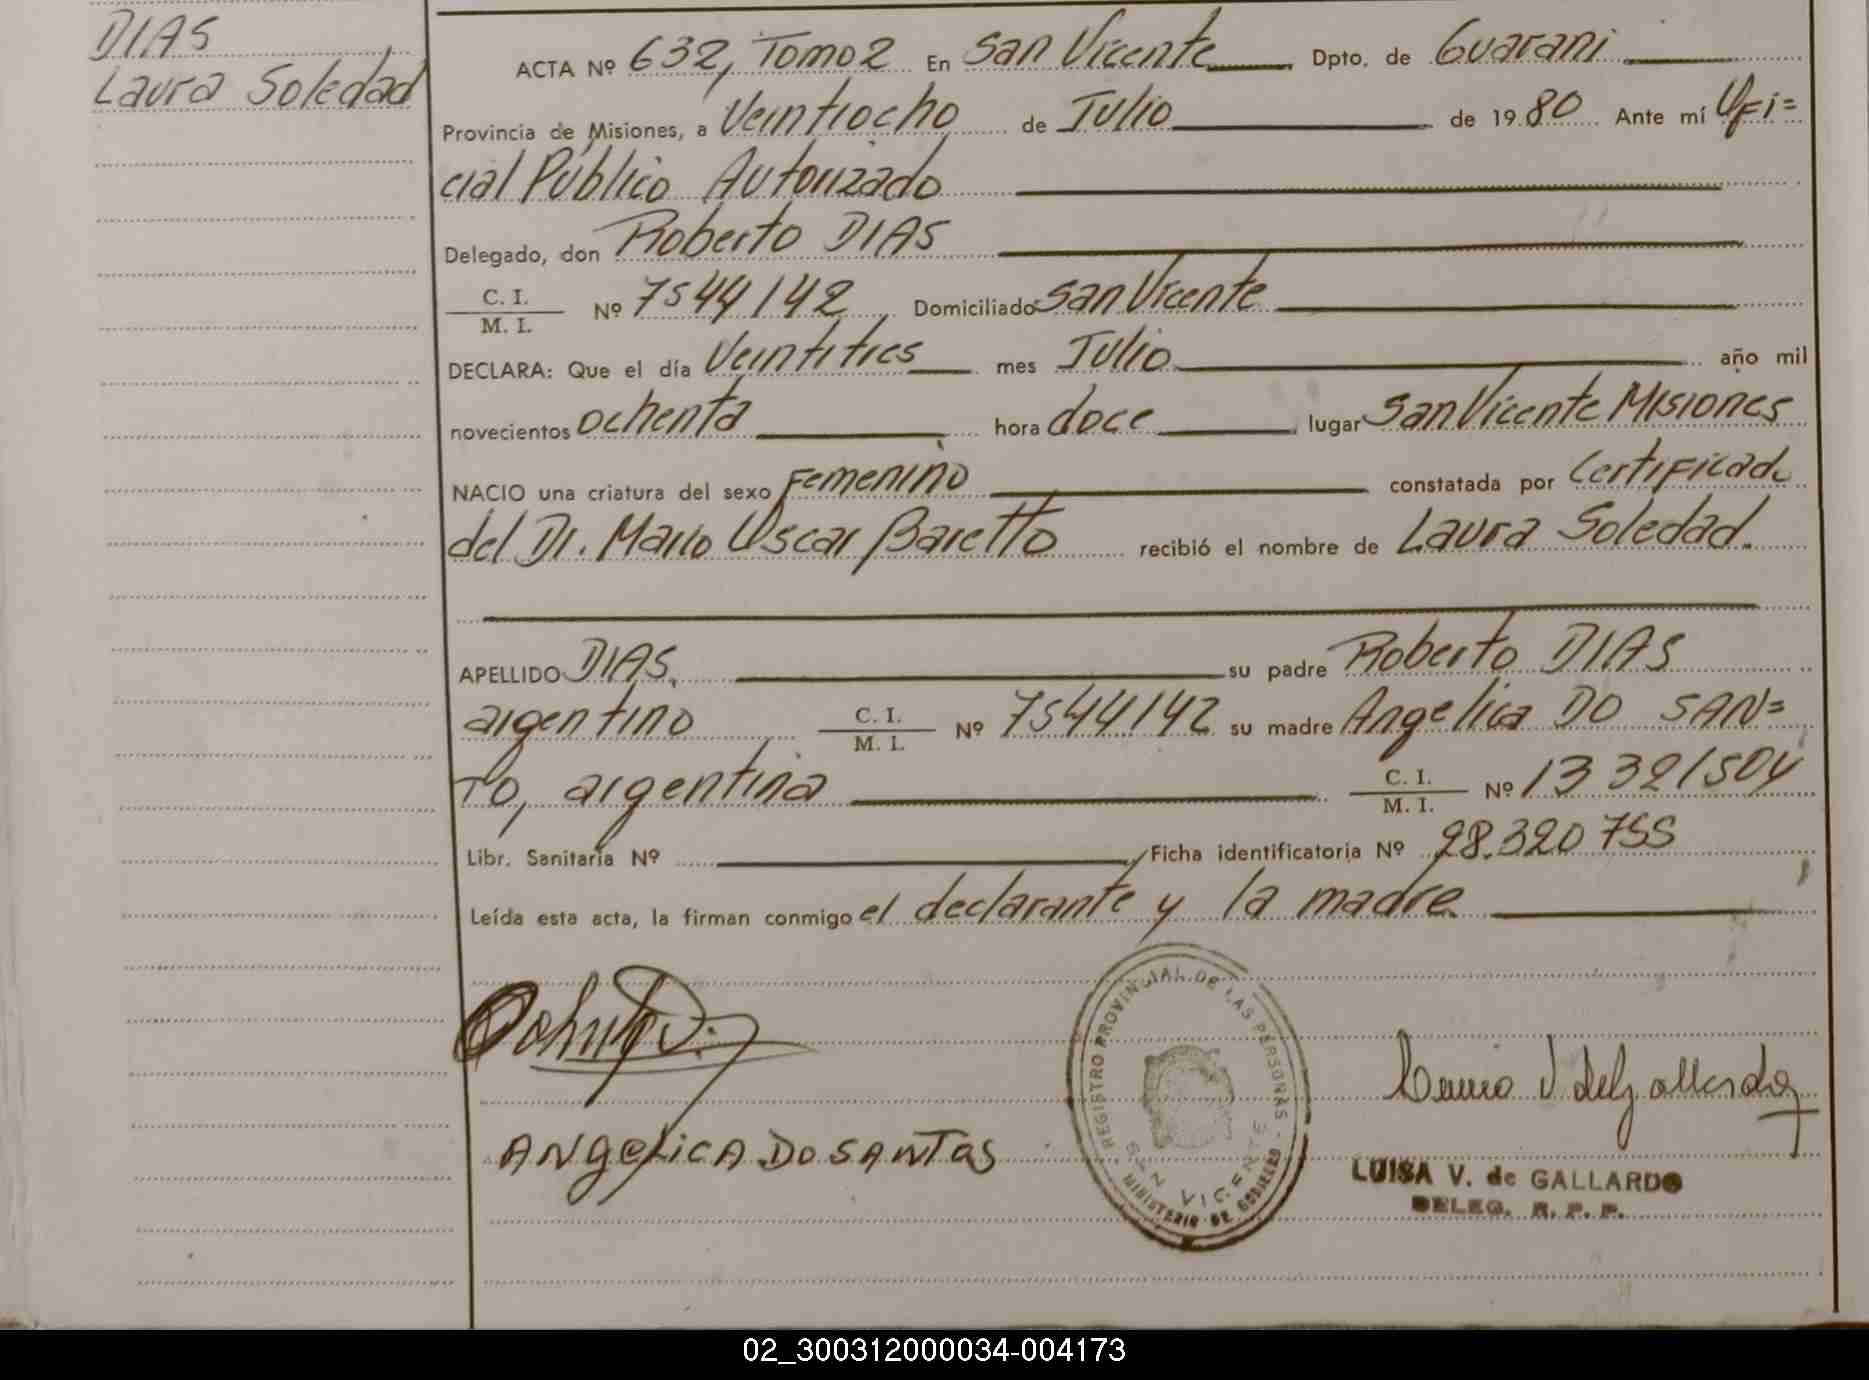 DIAS
Laura Soledad
ACTA Nº 632, Tomo 2 En San Vicente Dpto. de Guarani
Provincia de Misiones, a Veintiocho de Julio de 1980 Ante mí Ofi=
cial Público Autorizado
Delegado, don Roberto DIAS
C. I.
M. I. Nº 7544142 Domiciliado San Vicente
DECLARA: Que el día Veintitres mes Julio año mil
novecientos ochenta hora doce lugar San Vicente Misiones
NACIO una criatura del sexo Femenino constatada por Certificado
del Dr. Mario Oscar Baretto recibió el nombre de Laura Soledad.
APELLIDO DIAS, su padre Roberto DIAS
argentino C. I.
M. I. Nº 7544142 su madre Angelica DO SAN=
TO, argentina C. I.
M. I. Nº 13321504
Libr. Sanitaria Nº Ficha identificatoria Nº 28.320755
Leída esta acta, la firman conmigo el declarante y la madre
REGISTRO PROVINCIAL DE LAS PERSONAS
SAN VICENTE
MINISTERIO DE GOBIERNO
ANgeLicA DO SANTOS
LUISA V. de GALLARDO
DELEG. R. P. P.
02_300312000034-004173